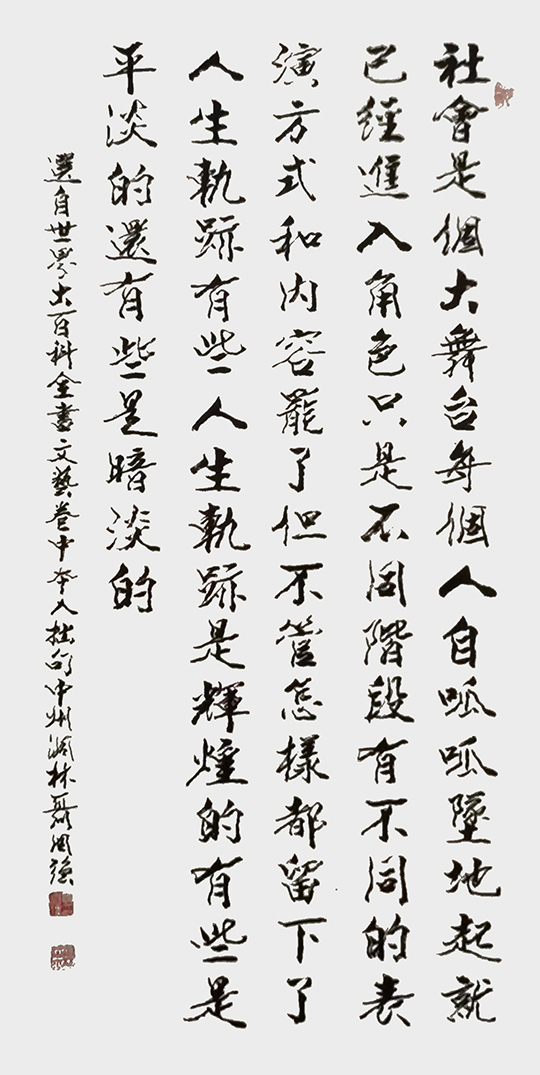 社會是個大舞台每個人自呱呱墜地起就
已經進入角色只是不同階段有不同的表
演方式和內容罷了但不管怎樣都留下了
人生軌跡有些人生軌跡是輝煌的有些是
平淡的還有些是暗淡的
選自世界大百科全書文藝卷中本人拙句中州 林聶周強